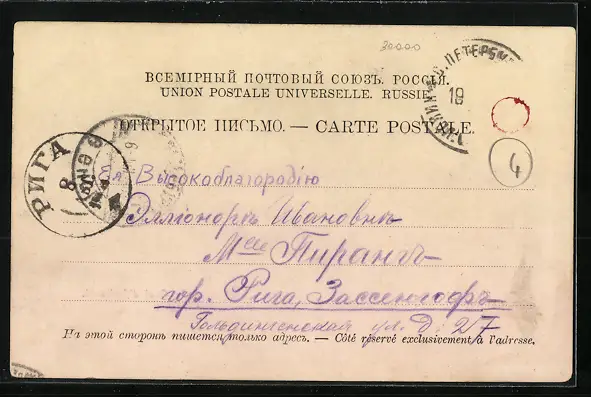 30000
ВСЕМІРНЫЙ ПОЧТОВЫЙ СОЮЗЪ. РОССІЯ.
UNION POSTALE UNIVERSELLE. RUSSIE.
С. ПЕТЕРБ
18
ОТКРЫТОЕ ПИСЬМО. — CARTE POSTALE.
4
РИГА
8
Ея Высокоблагородію
Эллионоръ Ивановнъ
Пирангъ
гор. Рига, Зассенгофъ
Гольдингенская ул. Д: 27
На этой сторонѣ пишется только адресъ. — Côté réservé exclusivement à l'adresse.